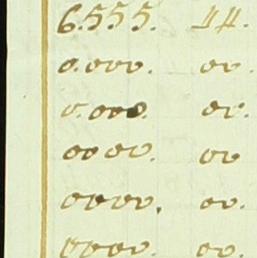 6.555. 44.
0.000. 00.
0.000. 00.
0000. 00
0000. 00.
0000. 00.